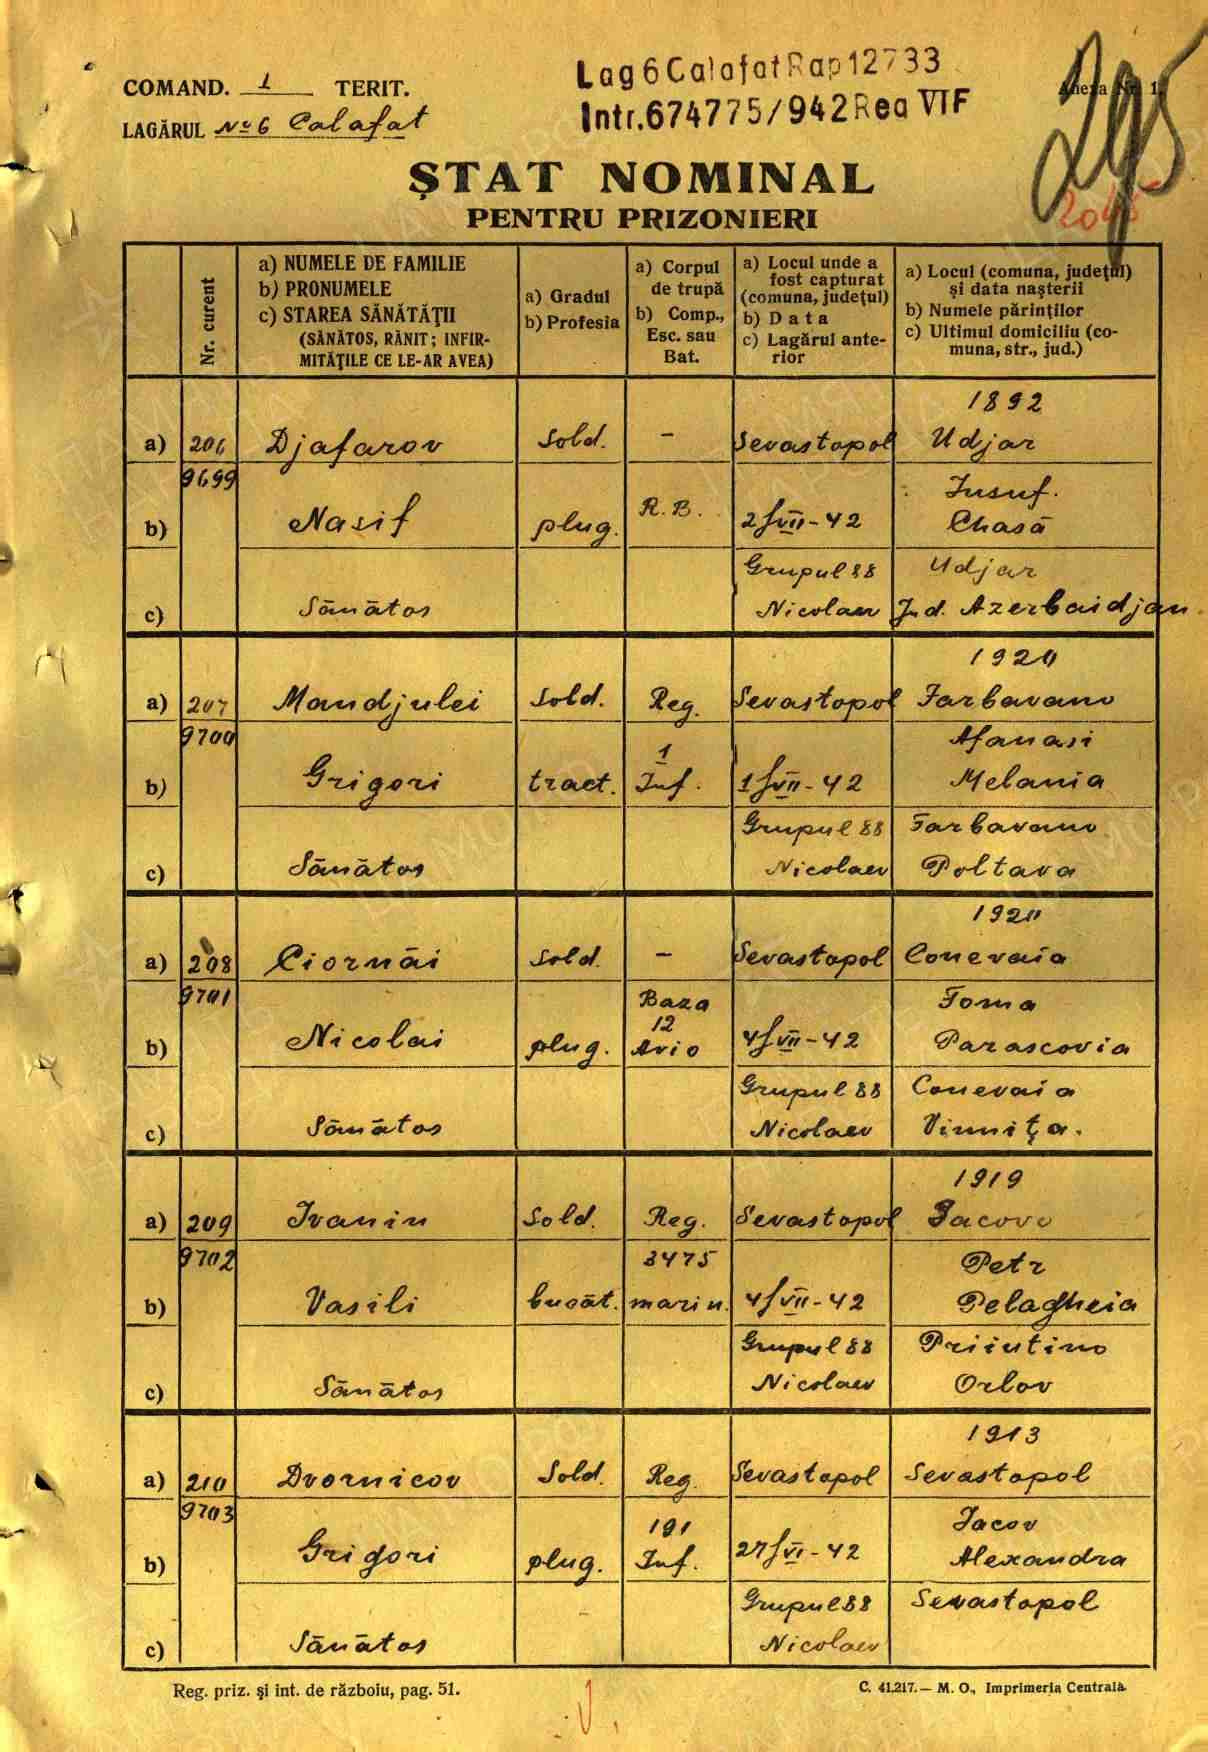 COMAND. 1 TERIT.
LAGĂRUL No 6 Calafat
Lag 6 Calafat Rap 12733
Intr. 674775/942 Rea VIF
Anexa Nr. 1.
295
ȘTAT NOMINAL
PENTRU PRIZONIERI
Nr. curent
a) NUMELE DE FAMILIE
b) PRONUMELE
c) STAREA SĂNĂTĂȚII
(SĂNĂTOS, RĂNIT; INFIR-
MITĂȚILE CE LE-AR AVEA)
a) Gradul
b) Profesia
a) Corpul
de trupă
b) Comp.,
Esc. sau
Bat.
a) Locul unde a
fost capturat
(comuna, județul)
b) Data
c) Lagărul ante-
rior
a) Locul (comuna, județul)
și data nașterii
b) Numele părinților
c) Ultimul domiciliu (co-
muna, str., jud.)
1892
a) 206 Djafarov Sold. - Sevastopol Udjar
9699 Jusuf.
b) Nasif plug. R.B. 2/VII-42 Chasă
Grupul 88 Udjar
c) Sănătos Nicolaev Jud. Azerbaidjan
1920
a) 207 Mandjulei Sold. Reg. Sevastopol Farbavano
9700 1 Afanasi
b) Grigori tract. Inf. 1/VII-42 Melania
Grupul 88 Farbavano
c) Sănătos Nicolaev Poltava
1920
a) 208 Ciornăi Sold. - Sevastopol Conevaia
9701 Baza Toma
12
b) Nicolai plug. Avio 4/VII-42 Parascovia
Grupul 88 Conevaia
c) Sănătos Nicolaev Vinnița.
1919
a) 209 Ivanin Sold. Reg. Sevastopol Jacovo
9702 3475 Petr
b) Vasili bucăt. marin. 4/VII-42 Pelagheia
Grupul 88 Priiutino
c) Sănătos Nicolaev Orlov
1913
a) 210 Dvornicov Sold. Reg. Sevastopol Sevastopol
9703 191 Jacov
b) Grigori plug. Inf. 27/VI-42 Alexandra
Grupul 88 Sevastopol
c) Sănătos Nicolaev
Reg. priz. și int. de războiu, pag. 51.
C. 41.217.— M. O., Imprimeria Centrală.